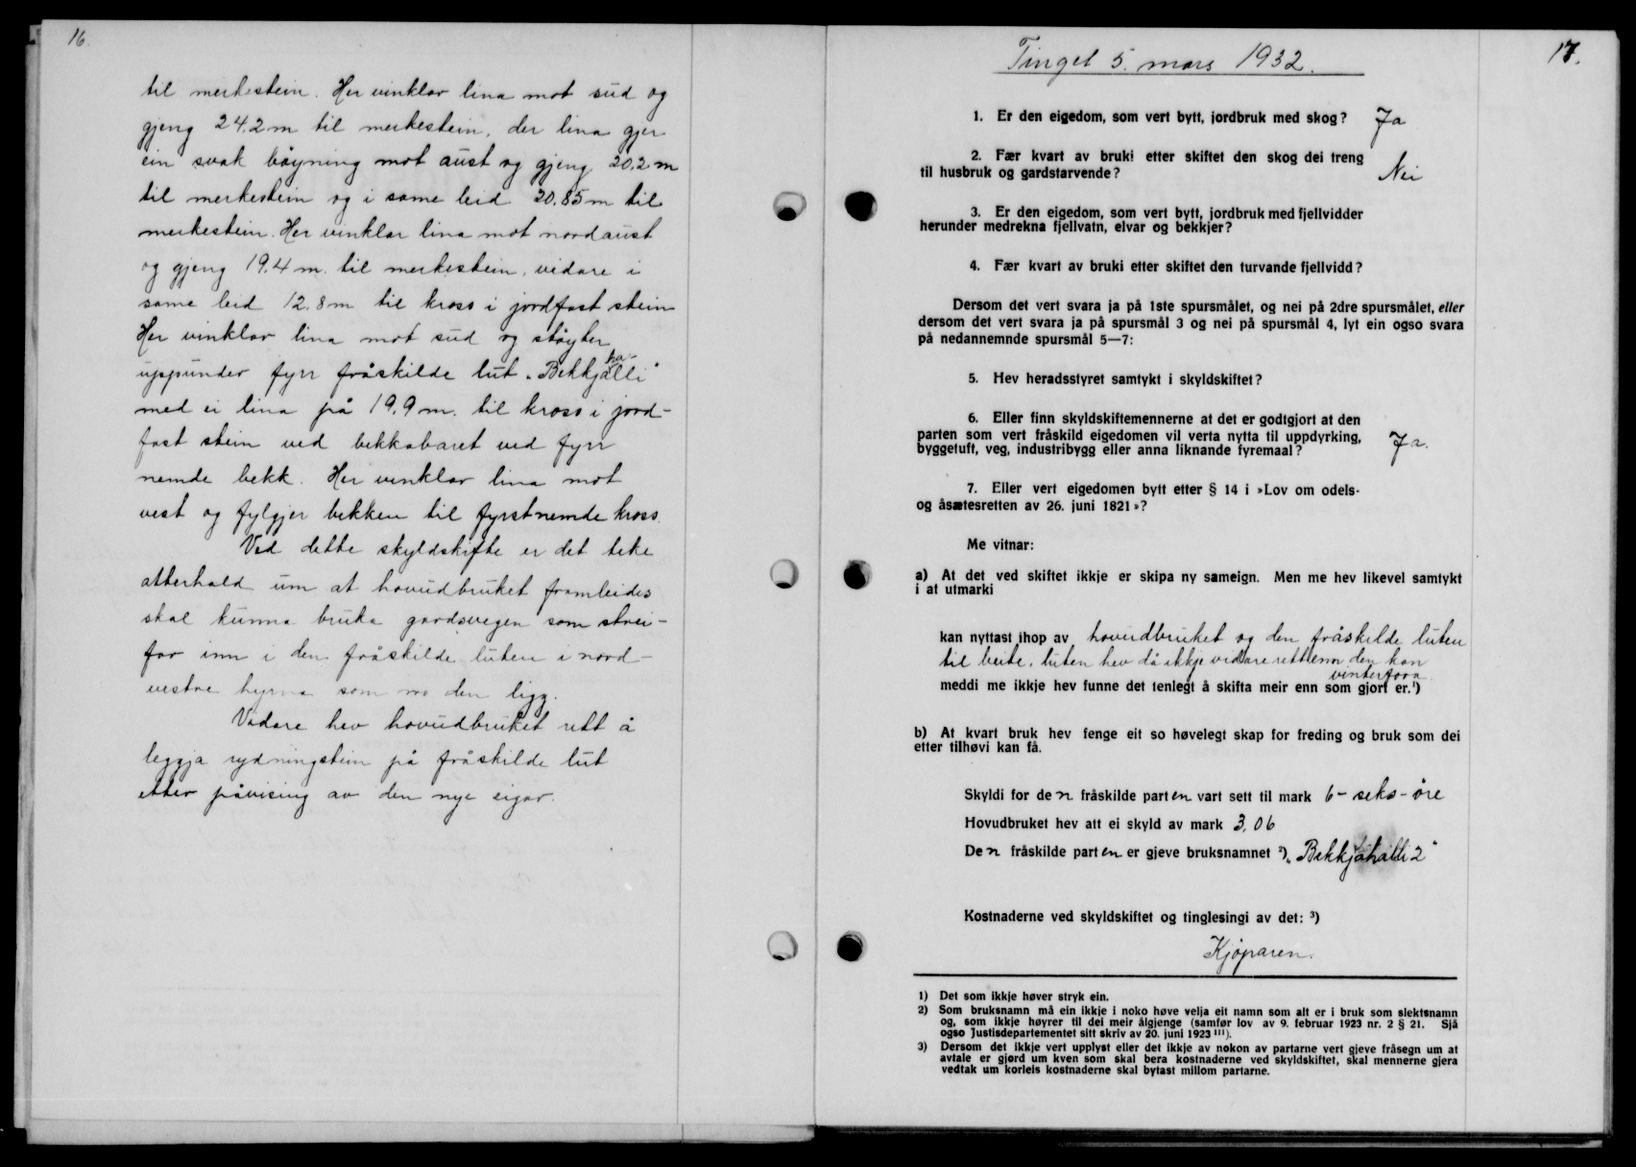 16.
til merkestein. Her vinklar lina mot sud og
gjeng 24.2 m til merkestein, der lina gjer
ein svak bøygning mot aust og gjeng 20,2 m
til merkestein og i same leid 20.85 m til
merkestein. Her vinklar lina mot nordaust
og gjeng 19.4 m. til merkestein, vidare i
same leid 12.8 m til kross i jordfast stein
Her vinklar lina mot sud og støyter
uppunder fyrr fråskilde lut "Bekkjahalli"
med ei lina på 19.9 m. til kross i jord-
fast stein ved bekkabaret ved fyrr
nemde bekk. Her vinklar lina mot
vest og fylgjer bekken til fyrstnemde kross.
Ved dette skyldskifte er det teke
atterhald um at hovudbruket framleides
skal kunna bruka gardsvegen som strei-
far inn i den fråskilde luten i nord-
vestre hyrna som no den ligg.
Vidare hev hovudbruket rett å
leggja rydningstein på fråskilde lut
etter påvising av den nye eigar.
17.
Tinget 5. mars 1932.
1. Er den eigedom, som vert bytt, jordbruk med skog? Ja
2. Fær kvart av bruki etter skiftet den skog dei treng
til husbruk og gardstarvende? Nei
3. Er den eigedom, som vert bytt, jordbruk med fjellvidder
herunder medrekna fjellvatn, elvar og bekkjer?
4. Fær kvart av bruki etter skiftet den turvande fjellvidd?
Dersom det vert svara ja på 1ste spursmålet, og nei på 2dre spursmålet, eller
dersom det vert svara ja på spursmål 3 og nei på spursmål 4, lyt ein ogso svara
på nedannemnde spursmål 5—7:
5. Hev heradsstyret samtykt i skyldskiftet?
6. Eller finn skyldskiftemennerne at det er godtgjort at den
parten som vert fråskild eigedomen vil verta nytta til uppdyrking,
byggetuft, veg, industribygg eller anna liknande fyremaal? Ja.
7. Eller vert eigedomen bytt etter § 14 i »Lov om odels-
og åsætesretten av 26. juni 1821»?
Me vitnar:
a) At det ved skiftet ikkje er skipa ny sameign. Men me hev likevel samtykt
i at utmarki
kan nyttast ihop av hovudbruket og den fråskilde luten
til beite, luten hev då ikkje vidare rett enn den kan
vinterfora.
meddi me ikkje hev funne det tenlegt å skifta meir enn som gjort er.¹)
b) At kvart bruk hev fenge eit so høvelegt skap for freding og bruk som dei
etter tilhøvi kan få.
Skyldi for den fråskilde parten vart sett til mark 6 - seks - øre
Hovudbruket hev att ei skyld av mark 3,06
Den fråskilde parten er gjeve bruksnamnet ²) "Bekkjahalli 2"
Kostnaderne ved skyldskiftet og tinglesingi av det: ³)
Kjøparen.
1) Det som ikkje høver stryk ein.
2) Som bruksnamn må ein ikkje i noko høve velja eit namn som alt er i bruk som slektsnamn
og, som ikkje høyrer til dei meir ålgjenge (samfør lov av 9. februar 1923 nr. 2 § 21. Sjå
ogso Justisdepartementet sitt skriv av 20. juni 1923 ¹¹¹).
3) Dersom det ikkje vert upplyst eller det ikkje av nokon av partarne vert gjeve fråsegn um at
avtale er gjord um kven som skal bera kostnaderne ved skyldskiftet, skal mennerne gjera
vedtak um korleis kostnaderne skal bytast millom partarne.